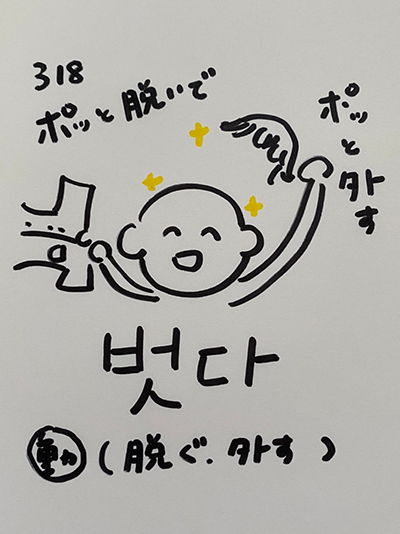 318
ポッと脱いで
ポッと外す
벗다
動 (脱ぐ.外す)